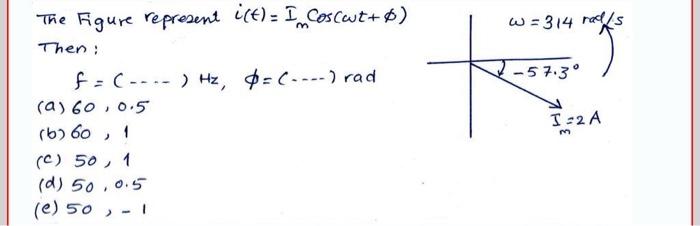 The Figure represent i(t) = I_m Cos(ωt + φ)
Then :
f = (----) Hz, φ = (----) rad
(a) 60 , 0.5
(b) 60 , 1
(c) 50 , 1
(d) 50 , 0.5
(e) 50 , -1
ω = 314 rad/s
-57.3°
I_m = 2 A